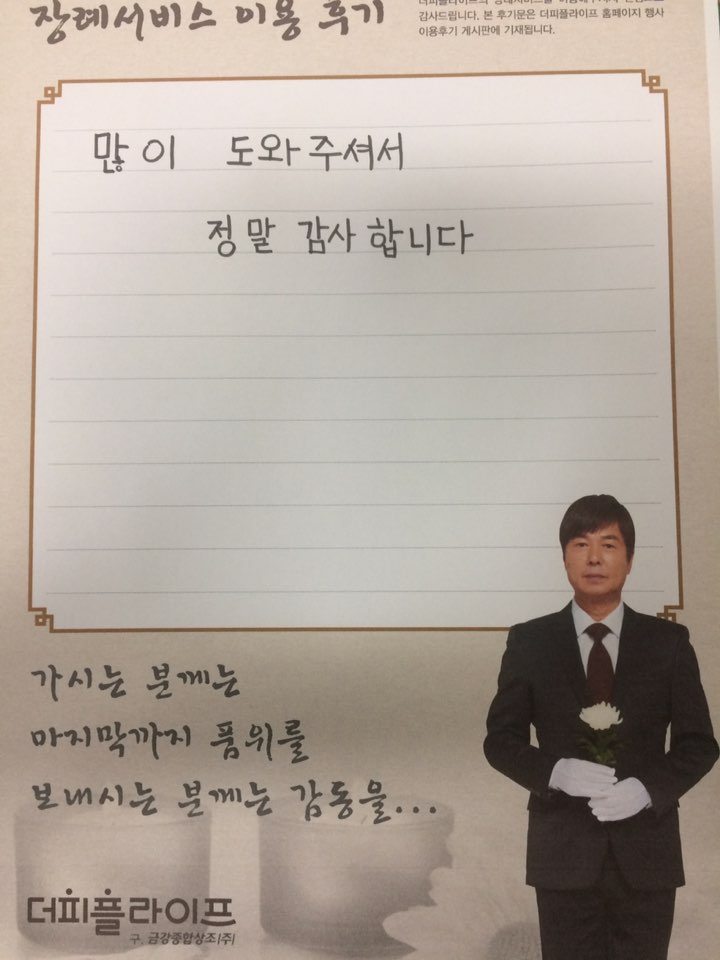 장례서비스 이용 후기
더피플라이프의 장례서비스를 이용해 주셔서 진심으로
감사드립니다. 본 후기문은 더피플라이프 홈페이지 행사
이용후기 게시판에 기재됩니다.
많이 도와주셔서
정말 감사합니다
가시는 분께는
마지막까지 품위를
보내시는 분께는 감동을...
더피플라이프
구. 금강종합상조(주)